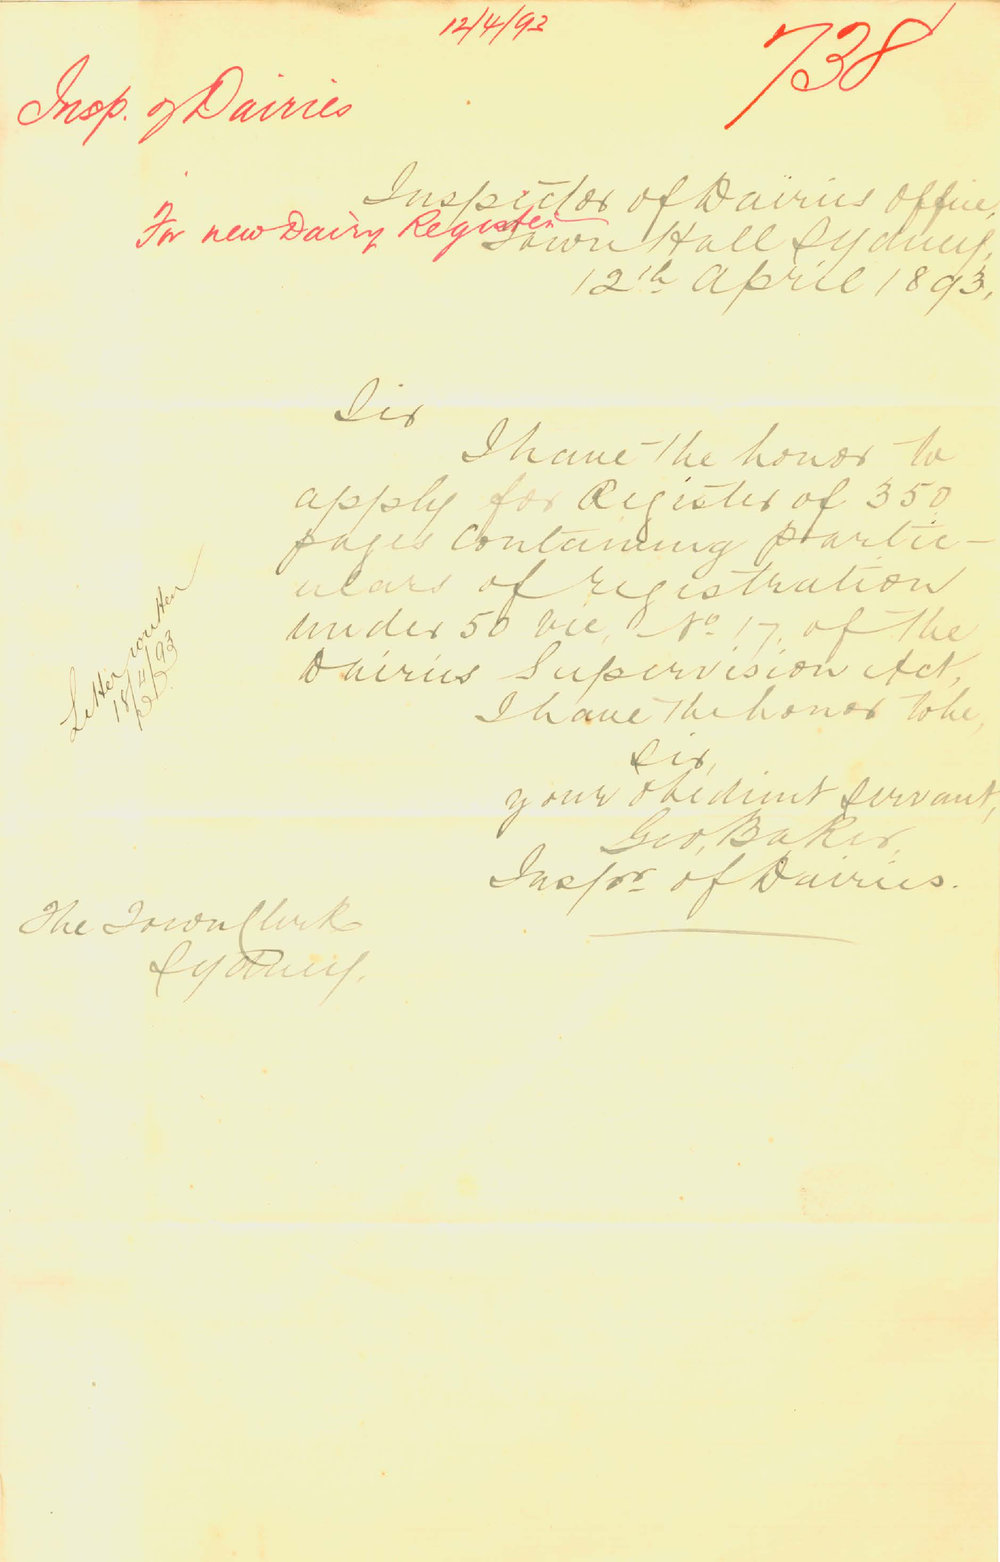 12/4/93
738
Insp. of Dairies
For new Dairy Register
Inspector of Dairies Office,
Town Hall Sydney,
12th April 1893,
Sir
I have the honor to
apply for Register of 350
pages Containing partic-
ulars of registration
under 50 Vic, No 17, of the
Dairies Supervision Act,
I have the honor to be,
Sir,
your obedient servant,
Geo, Baker,
Inspr of Dairies.
The Town Clerk
Sydney.
Letter written
18/4/93